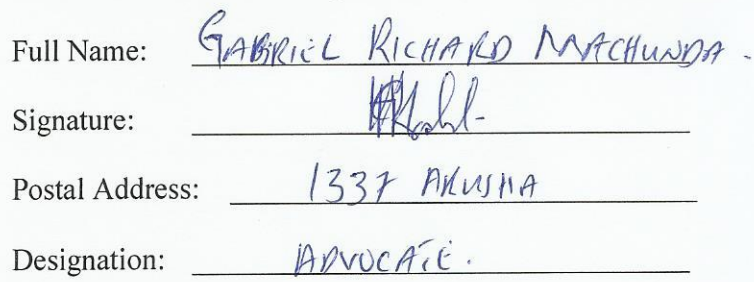 Full Name: GABRIEL RICHARD MACHUNDA.
Signature:
Postal Address: 1337 ARUSHA
Designation: ADVOCATE.